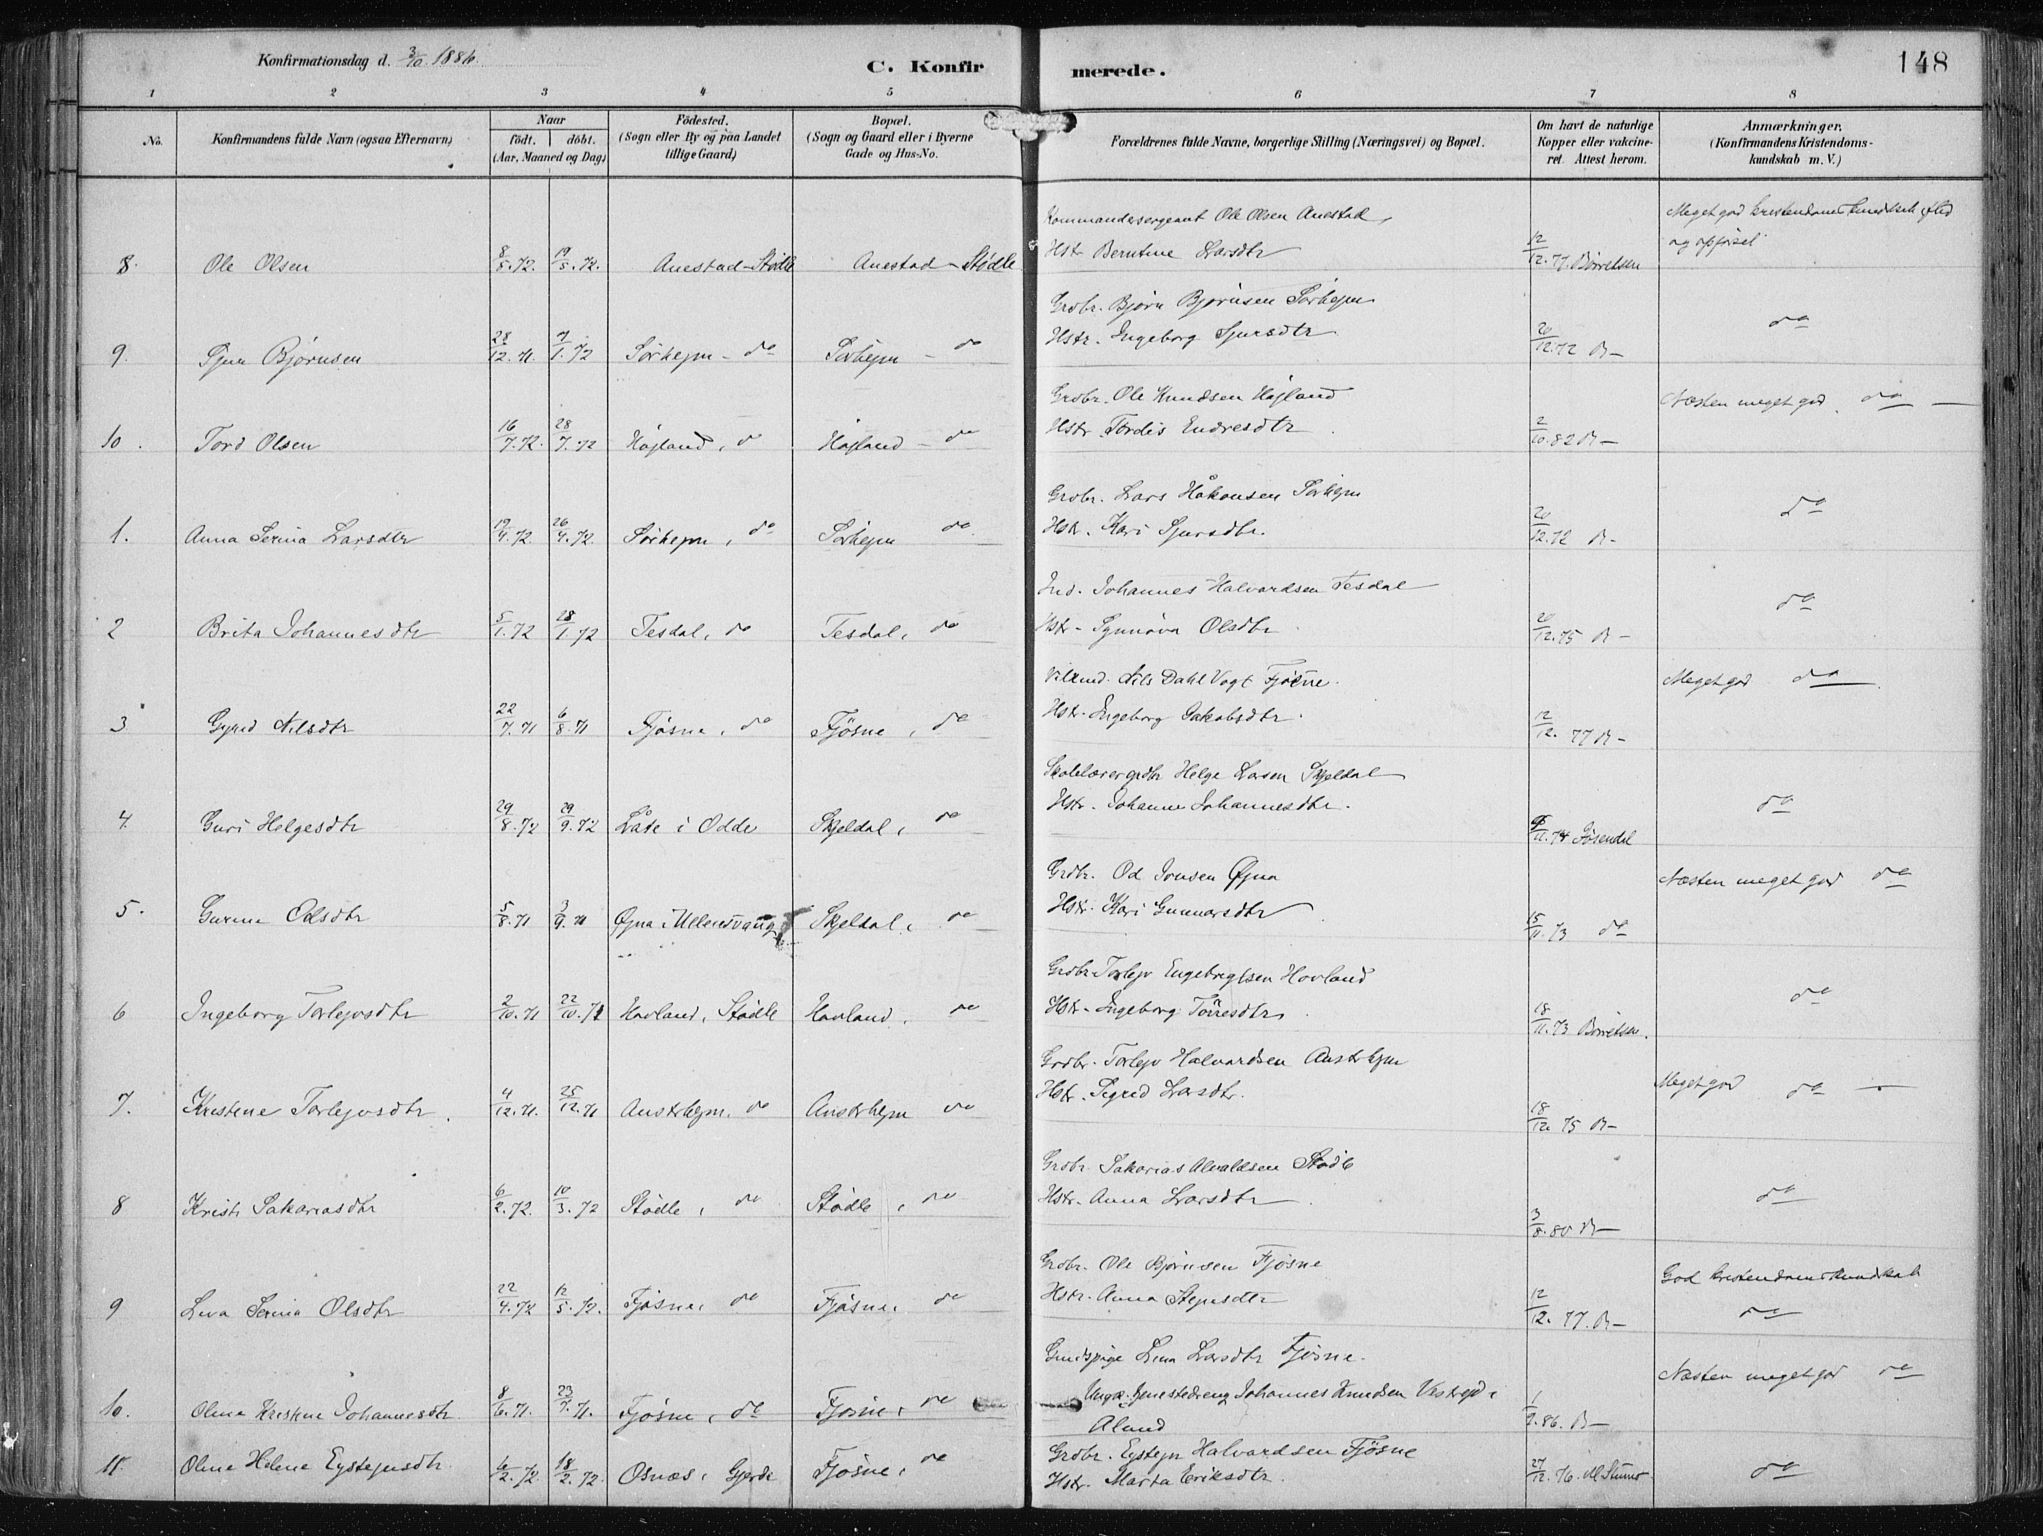 Konfirmationsdag d. 3/10 1886.
C. Konfirmerede.
148
1 2 3 4 5 6 7 8
No.
Konfirmandens fulde Navn (ogsaa Efternavn)
Naar
födt. döbt.
(Aar, Maaned og Dag)
Födested.
(Sogn eller By og paa Landet
tillige Gaard)
Bopæl.
(Sogn og Gaard eller i Byerne
Gade og Hus-No.
Forældrenes fulde Navne, borgerlige Stilling (Næringsvei) og Bopæl.
Om havt de naturlige
Kopper eller vakcine-
ret. Attest herom.
Anmærkninger.
(Konfirmandens Kristendoms-
kundskab m. V.)
Kommandersergeant Ole Olsen Anestad,
Meget god kristendomskundskab, flid
og opførsel
8. Ole Olsen 8/5.72. 19/5.72. Anestad-Stødle Anestad-Stødle Hstr Berntine Larsdtr 12/12.77. Børretsen
Grdbr. Bjørn Bjørnsen Sørhejm
9. Sjur Bjørnsen 28/12.71. 7/1.72 Sørhejm - do Sørhejm - do Hstr. Ingeborg Sjursdtr. 20/12.72 B- do
Grdbr. Ole Knudsen Højland
10. Tord Olsen 16/7.72. 28/7.72 Højland, do Højland - do Hstr. Tordis Endresdtr. 2/10.82 B- Næsten meget god do
Grdbr. Lars Håkonsen Sørhejm
1. Anna Serina Larsdtr 19/4.72 26/4.72. Sørhejm, do Sørhejm do Hstr. Kari Sjursdtr. 20/12.72 B- do
Ind. Johannes Halvardsen Tesdal
2 Brita Johannesdtr 5/1.72 28/1.72 Tesdal, do Tesdal, do Hstr- Synnøva Olsdtr. 20/12.75 B- do
Nils Dahl Vogt Fjøsne.
3 Gyrid Nilsdtr 22/7.71 6/8.71 Fjøsne, do Fjøsne, do Hstr. Ingeborg Jakobsdtr. 12/12. 77 B- Meget god do
Skolelærer grdbr Helge Larsen Skjeldal
4. Guri Helgesdtr 29/8.72 29/9.72 Låte i Odde Skjeldal, do Hstr. Johanne Johannesdtr. /11.74 Jøsendal do
Grdbr. Od Jonsen Øyna
5. Odsdtr 5/8.71 3/9.71 Øyna i Ullensvang Skjeldal, do Hstr. Kari Gunnarsdtr 15/11.73 do Næsten meget god do
Grdbr Torlejv Engebregtsen Hovland
6 Ingeborg Torlejvsdtr 2/10.71 22/10.71 Hovland, Stødle Hovland, do Hstr. Ingeborg Tørresdtr, 18/11.73 Børretsen. do
Grdbr. Torlejv Halvardsen Austrhejm
7. Kristine Torlejvsdtr. 4/12.71. 25/12.71 Austrhejm, do Austrhejm do Hstr. Sigrid Larsdtr. 18/12. 75 B- Meget god do
Grdbr. Sakarias Alvaldsen Stødle
8 Kristi Sakariasdtr 6/2.72. 10/3.72 Stødle, do Stødle, do Hstr. Anna Larsdtr. 3/8.80 B- do
Grdbr. Ole Bjørnsen Fjøsne
God kristendomskundskab
9 Lina Serina Olsdtr 22/4.72 12/5.72. Fjøsne, do Fjøsne, do Hstr. Anna 12/12. 77. B- do
Lina Larsdtr Fjøsne.
Næsten meget god do
10. Oline Kristine Johannesdtr. 8/6.71. 23/7.71. Fjøsne, do Fjøsne, do Johannes Knudsen 1/9.86. B-
Grdbr. Eystejn Halvardsen Fjøsne
11. Oline Helene Eystejnsdtr. 6/2.72. 18/2.72. Osnæs, Gjerde Fjøsne, do Hstr. Marta Eriksdtr. 27/12.76. do